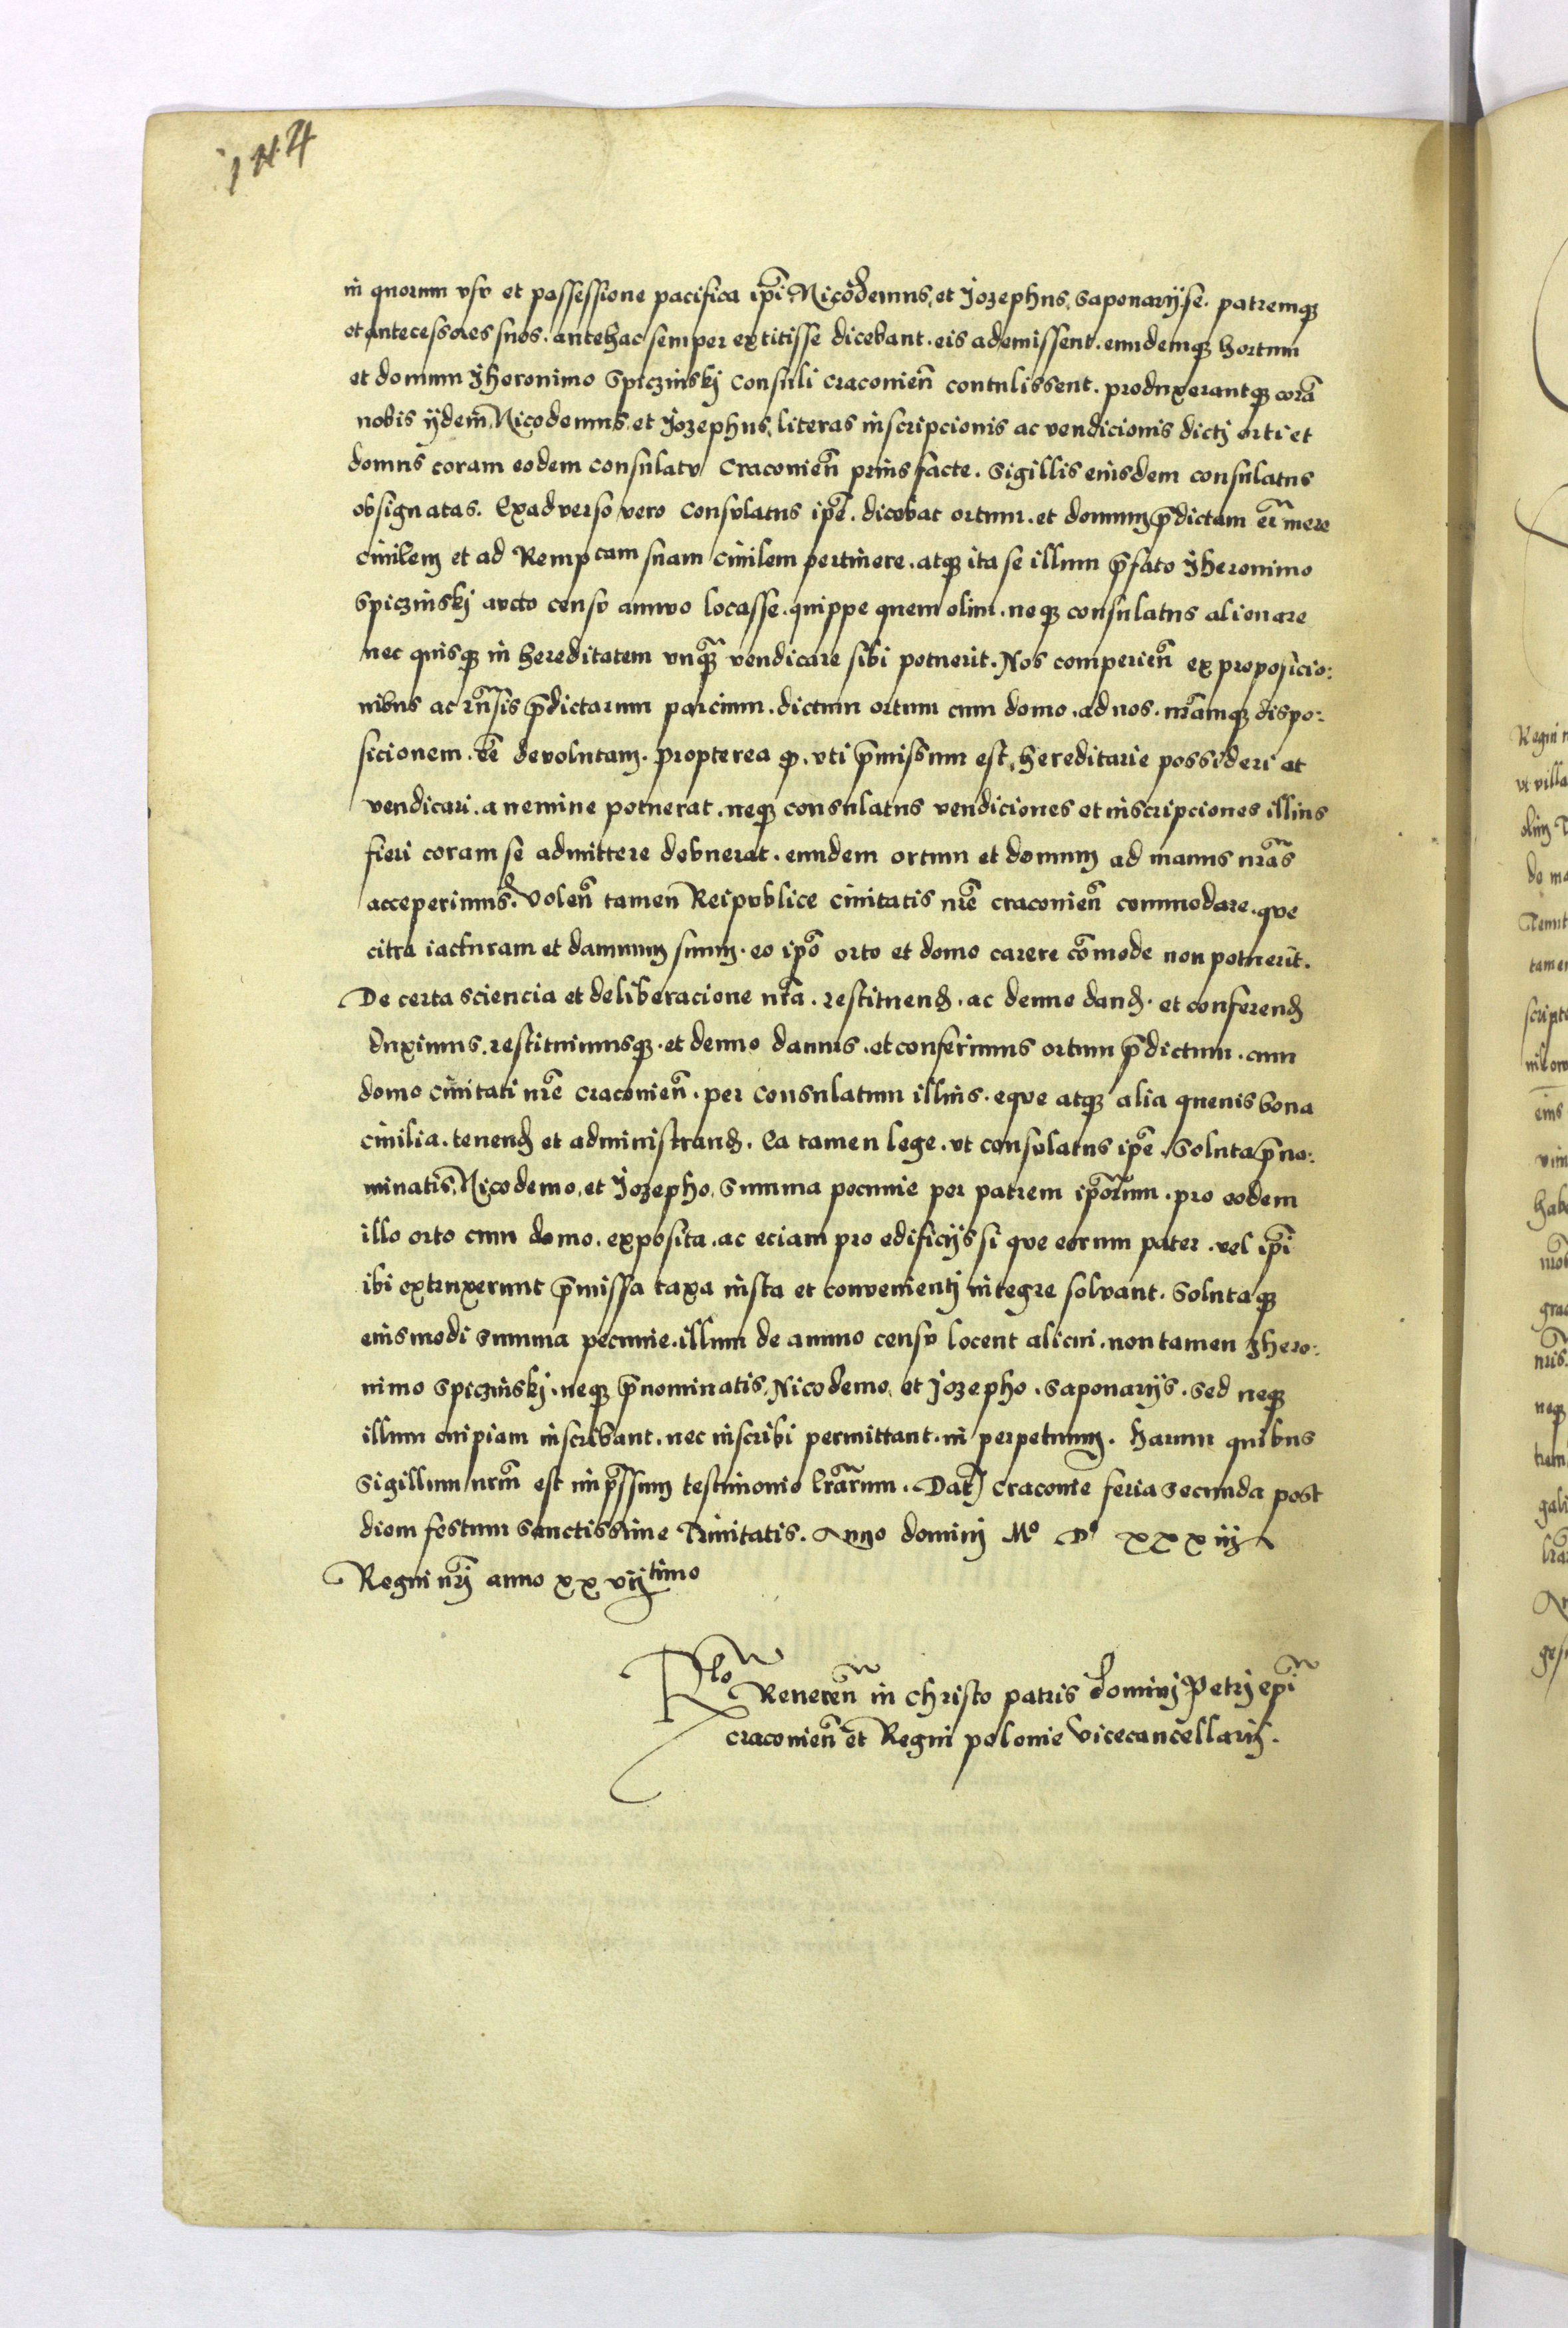 144
in quorum vsu et possessione pacifica ip̃i Nicodemus, et Jozephus, saponarij se. patremq3
et antecessores suos. antehac semper extitisse dicebant. eis ademissent. eundemq3 hortum
et domum Jheronimo Spiczinskj Consuli Craconień contulissent. produxerantq3 corã
nobis ijdem, Nicodemus, et Jozephus, literas inscripcionis ac vendicionis dictj orti et
domus coram eodem consulatu Craconień prius facte. Sigillis eiusdem consulatus
obsignatas. Exadverso vero Consulatus ip̃e. dicebat ortum. et domum p̃dictam eẽ mere
ciuilem et ad Rempcam suam ciuilem pertinere. atq3 ita se illum p̃fato Jheronimo
Spiczinskj aucto censu annuo locasse. quippe quem olim. neq3 consulatus alienare
nec quisq3 in hereditatem vnq̃ vendicare sibi potuerit. Nos comperień ex proposicio:
nibus ac rñsis p̃dictarum parcium. dictum ortum cum domo. ad nos. nr̃amq3 dispo:
sicionem. eẽ devolutam. propterea q. vti p̃missum est, hereditarie possideri at
vendicari. a nemine potuerat. neq3 consulatus vendiciones et inscripciones illius
fieri coram se admittere debuerat. eundem ortum et domum ad manus nr̃as
acceperimus. Voleñ tamen Reipublice ciuitatis nr̃e craconień commodare. que
citra iacturam et damnum suum. eo ip̃o orto et domo carere cõmode non potuerit.
De certa sciencia et deliberacione nr̃a. restituend. ac denuo dand. et conferend
duximus. restituimusq3. et denuo damus. et conferimus ortum p̃dictum. cum
domo ciuitati nr̃e craconień. per Consulatum illius. eque atq3 alia queuis bona
ciuilia. tenend et administrand. Ea tamen lege. vt consulatus ip̃e. Soluta p̃no:
minatis, Nicodemo, et Jozepho, summa pecunie per patrem ip̃orum. pro eodem
illo orto cum domo. exposita. ac eciam pro edificijs si que eorum pater. vel ip̃i
ibi extruxerunt p̃missa taxa iusta et convenientj integre solvant. Solutaq3
eiusmodi summa pecunie. illum de annuo censu locent alicui. non tamen Jhero:
nimo Spiczinskj. neq3 p̃nominatis, Nicodemo, et Jozepho. saponarijs. Sed neq3
illum cuipiam inscribant. nec inscribi permittant. in perpetuum. Harum quibus
Sigillum nrm̃ est imp̃ssum testimonio lr̃arum. Dat̃ Craconie feria secunda post
diem festum sanctissime Trinitatis. Anno dominj Mo Do xxxiij
Regni nr̃j anno xxvijtimo
Rlo Reuereñ in Christo patris dominj Petrj ep̃i
craconień et Regni polonie vicecancellarij.